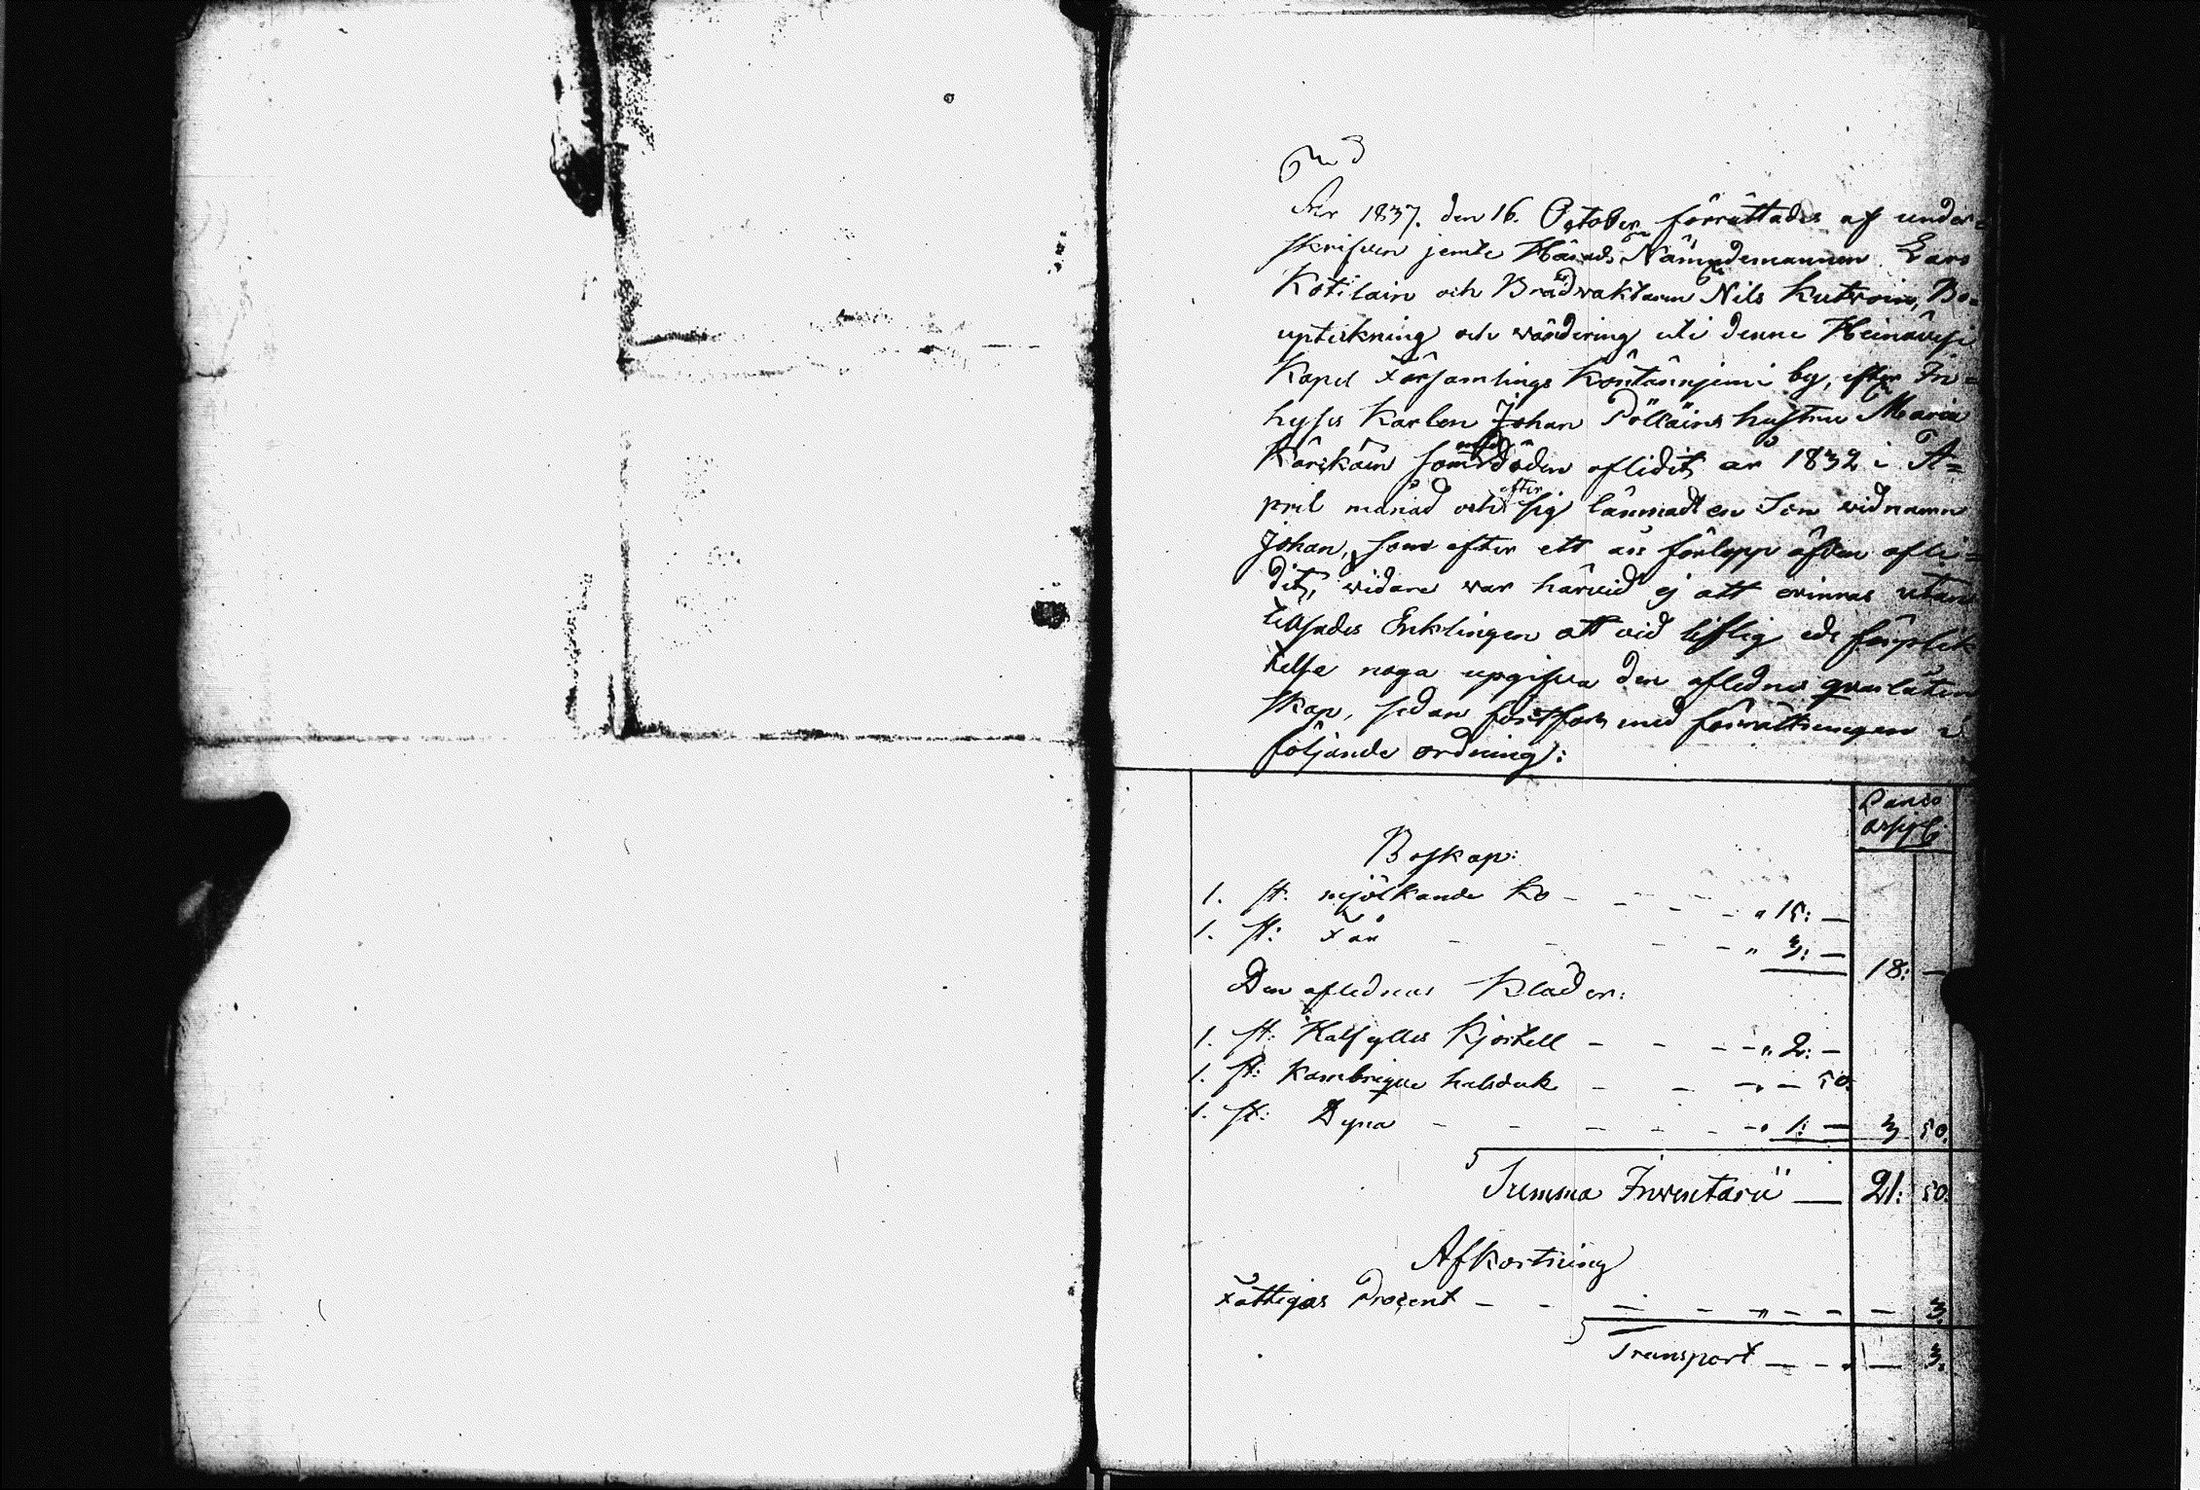 År 1837. den 16. October förrättades af under=
skrifven jemte Härads Nämndemannen Lars
Kotilain och Brådvaktaren Nils Kutvoin, Bo=
upteckning och wärdering uti denne Heinävesi
Kapel Församlings Kontännjemi by, efter In=
hyses Karlen Johan Pölläins hustru Maria
Kärkäin som med döden aflidit år 1832 i A=
pril månad och efter sig lämnadt en Son vid namn
Johan, som efter ett års förlopp äfven afli=
dit, widare war härvid ej att erinras utan
tillsades Enklingen att vid liflig eds förplik
telse noga uppgifva den aflednes qvarlåten
skap, sedan fortfors med förrättningen i
följande ordning:
Banco
Boskap:
1. st. mjölkande Ko - - - - " 15: —
1. st: Får - - - - " 3: — 18: —
Den aflednas Kläder:
1. st: Halfylles Kjortell - - - " 2: —
1. st: Kambrique halsduk - - - " — 50.
1. st: Dyna - - - - - " 1: — 3 50.
Summa Inventarii — 21: 50.
Afkortning
Fattigas Procent - - - - " - - — 3.
Transport - - - — 3.